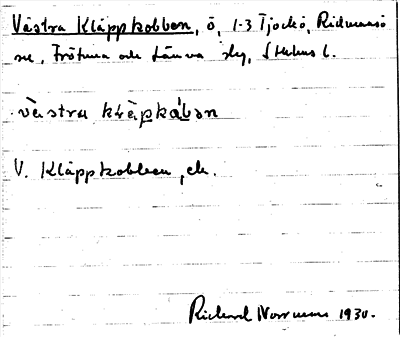 Västra Kläppkobben, ö, 1-3 Tjockö, Ridmansö
sn, Frötuna och Länna slg, Sthlms l.
västra kläpkåbən
V. Kläppkobben, ek.
Rickard Norrman 1930.